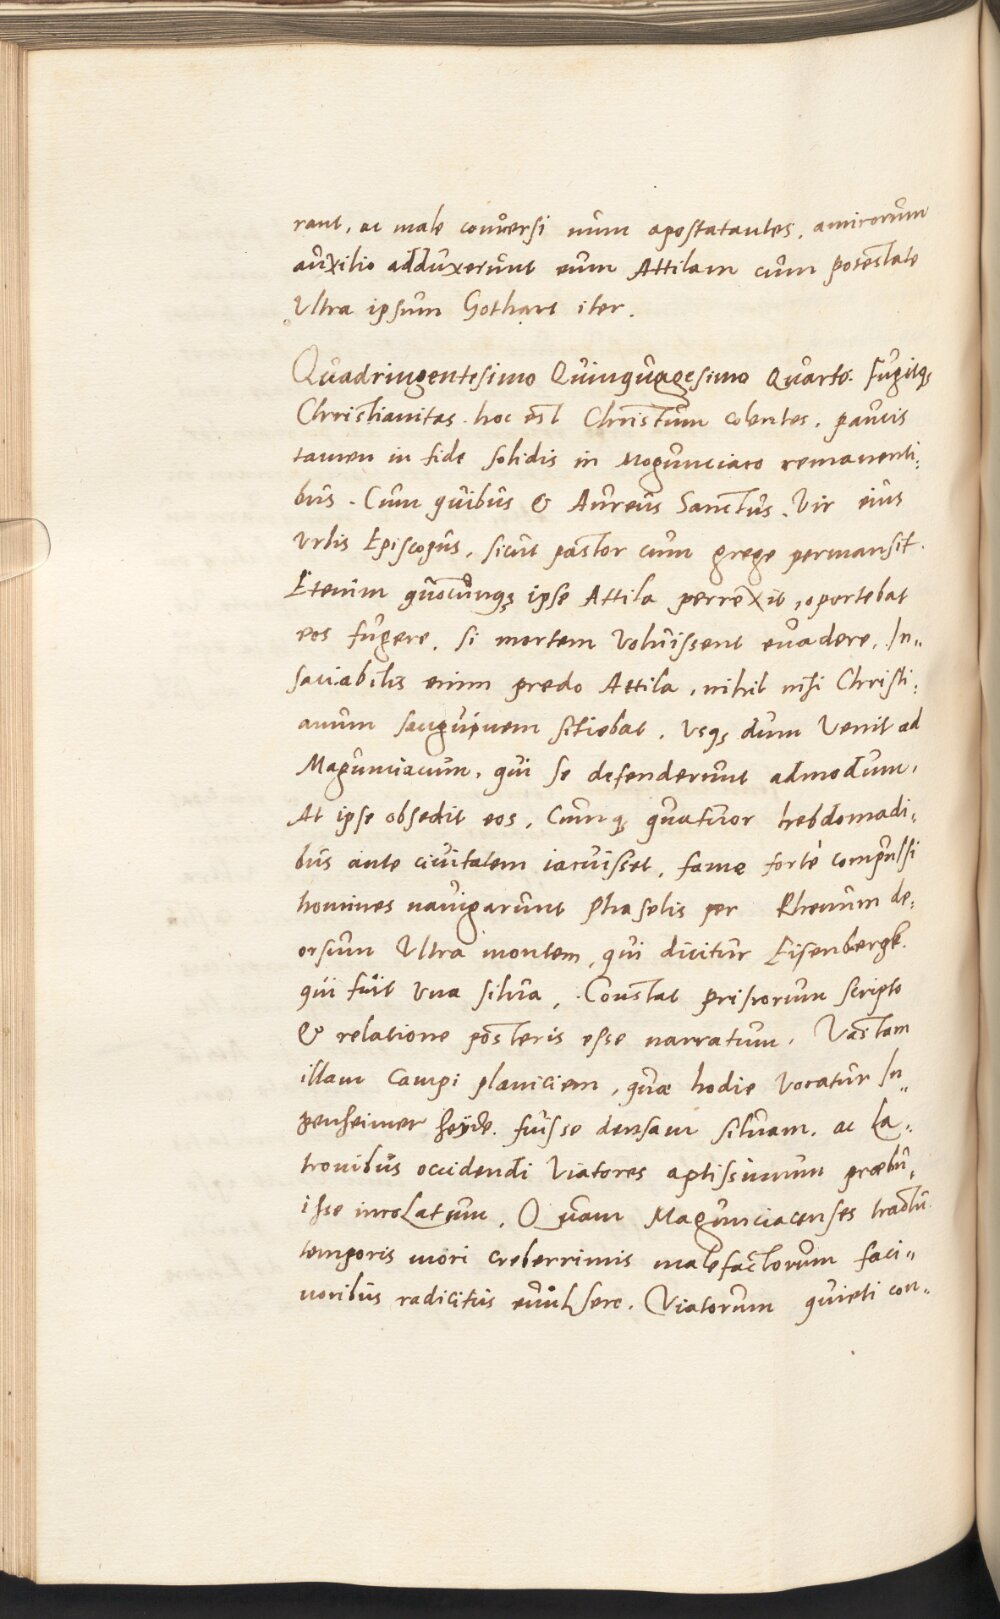 rant, ac male conversi num apostatantes, amicorum
auxilio adduxerunt eum Attilam cum potestate
Ultra ipsum Gothart iter.
Quadringentesimo Quinquagesimo Quarto. fugitq;
Christianitas. hoc est Christum colentes, paucis
tamen in fide solidis in Mogunciaco remanenti,
bus. Cum quibus & Aureus Sanctus, Vir eius
Urbis Episcopus, sicut pastor cum grege permansit.
Etenim quocunq; ipse Attila perrexit, oportebat
eos fugere, si mortem Voluissent evadere. In„
saciabilis enim predo Attila, nihil nisi Christi,
anum sanguinem sitiebat, Usq; dum Venit ad
Magunciacum, qui se defenderunt admodum,
At ipse obsedit eos, Cumq; quatuor hebdomadi,
bus ante civitatem iacuisset, fame fortè compulsi
homines navigarunt Phaselis per Rhenum de,
orsum Ultra montem, qui dicitur Eisenbergk.
qui fuit una silva, Constat priscorum scripto
& relatione posteris esse narratum, Vastam
illam Campi planiciem, quæ hodie Vocatur In„
genheimer heyde. fuisse densam silvam, ac La„
tronibus occidendi Viatores aptissimum præbu,
isse incolatum. Quam Magunciacenses tractu
temporis mori creberrimis malefactorum faci„
noribus radicitus evulsere. Viatorum quieti con„